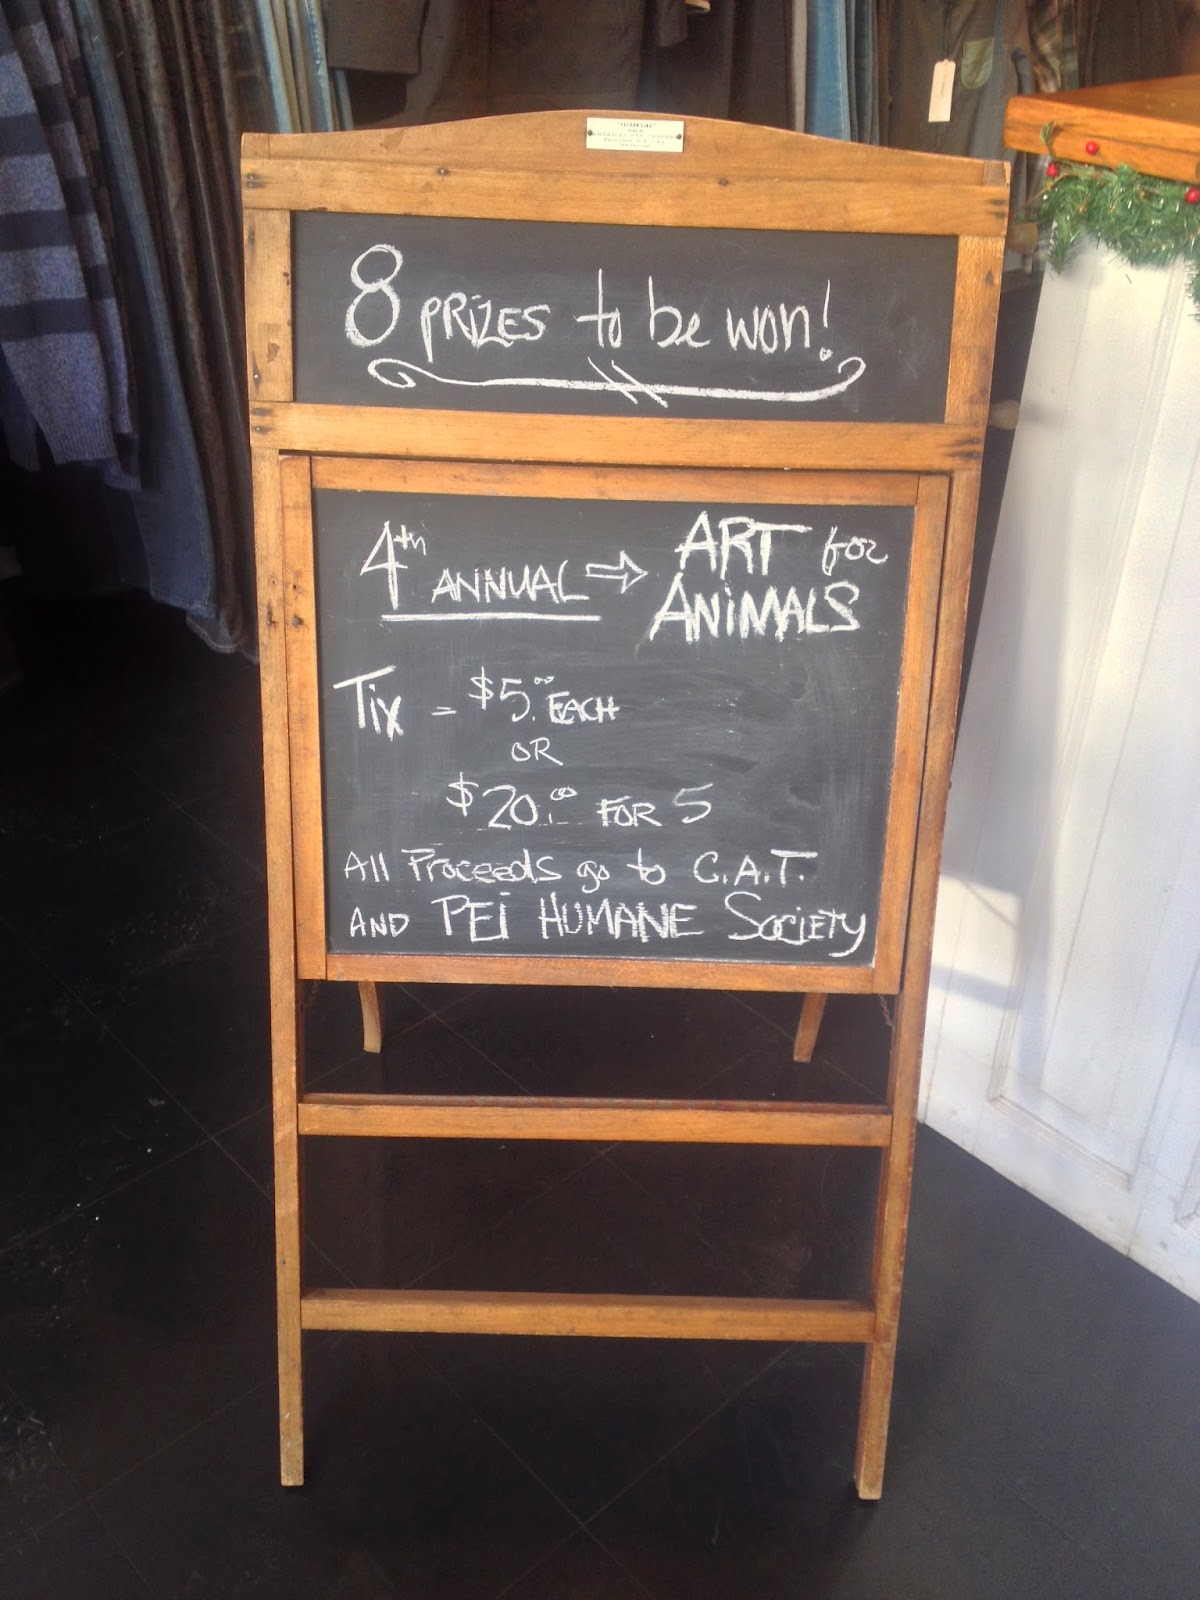 8 PRIZES to be won!
4th ANNUAL ⇒ ART for
ANIMALS
Tix - $5.00 EACH
OR
$20.00 FOR 5
All Proceeds go to C.A.T.
AND PEI HUMANE Society